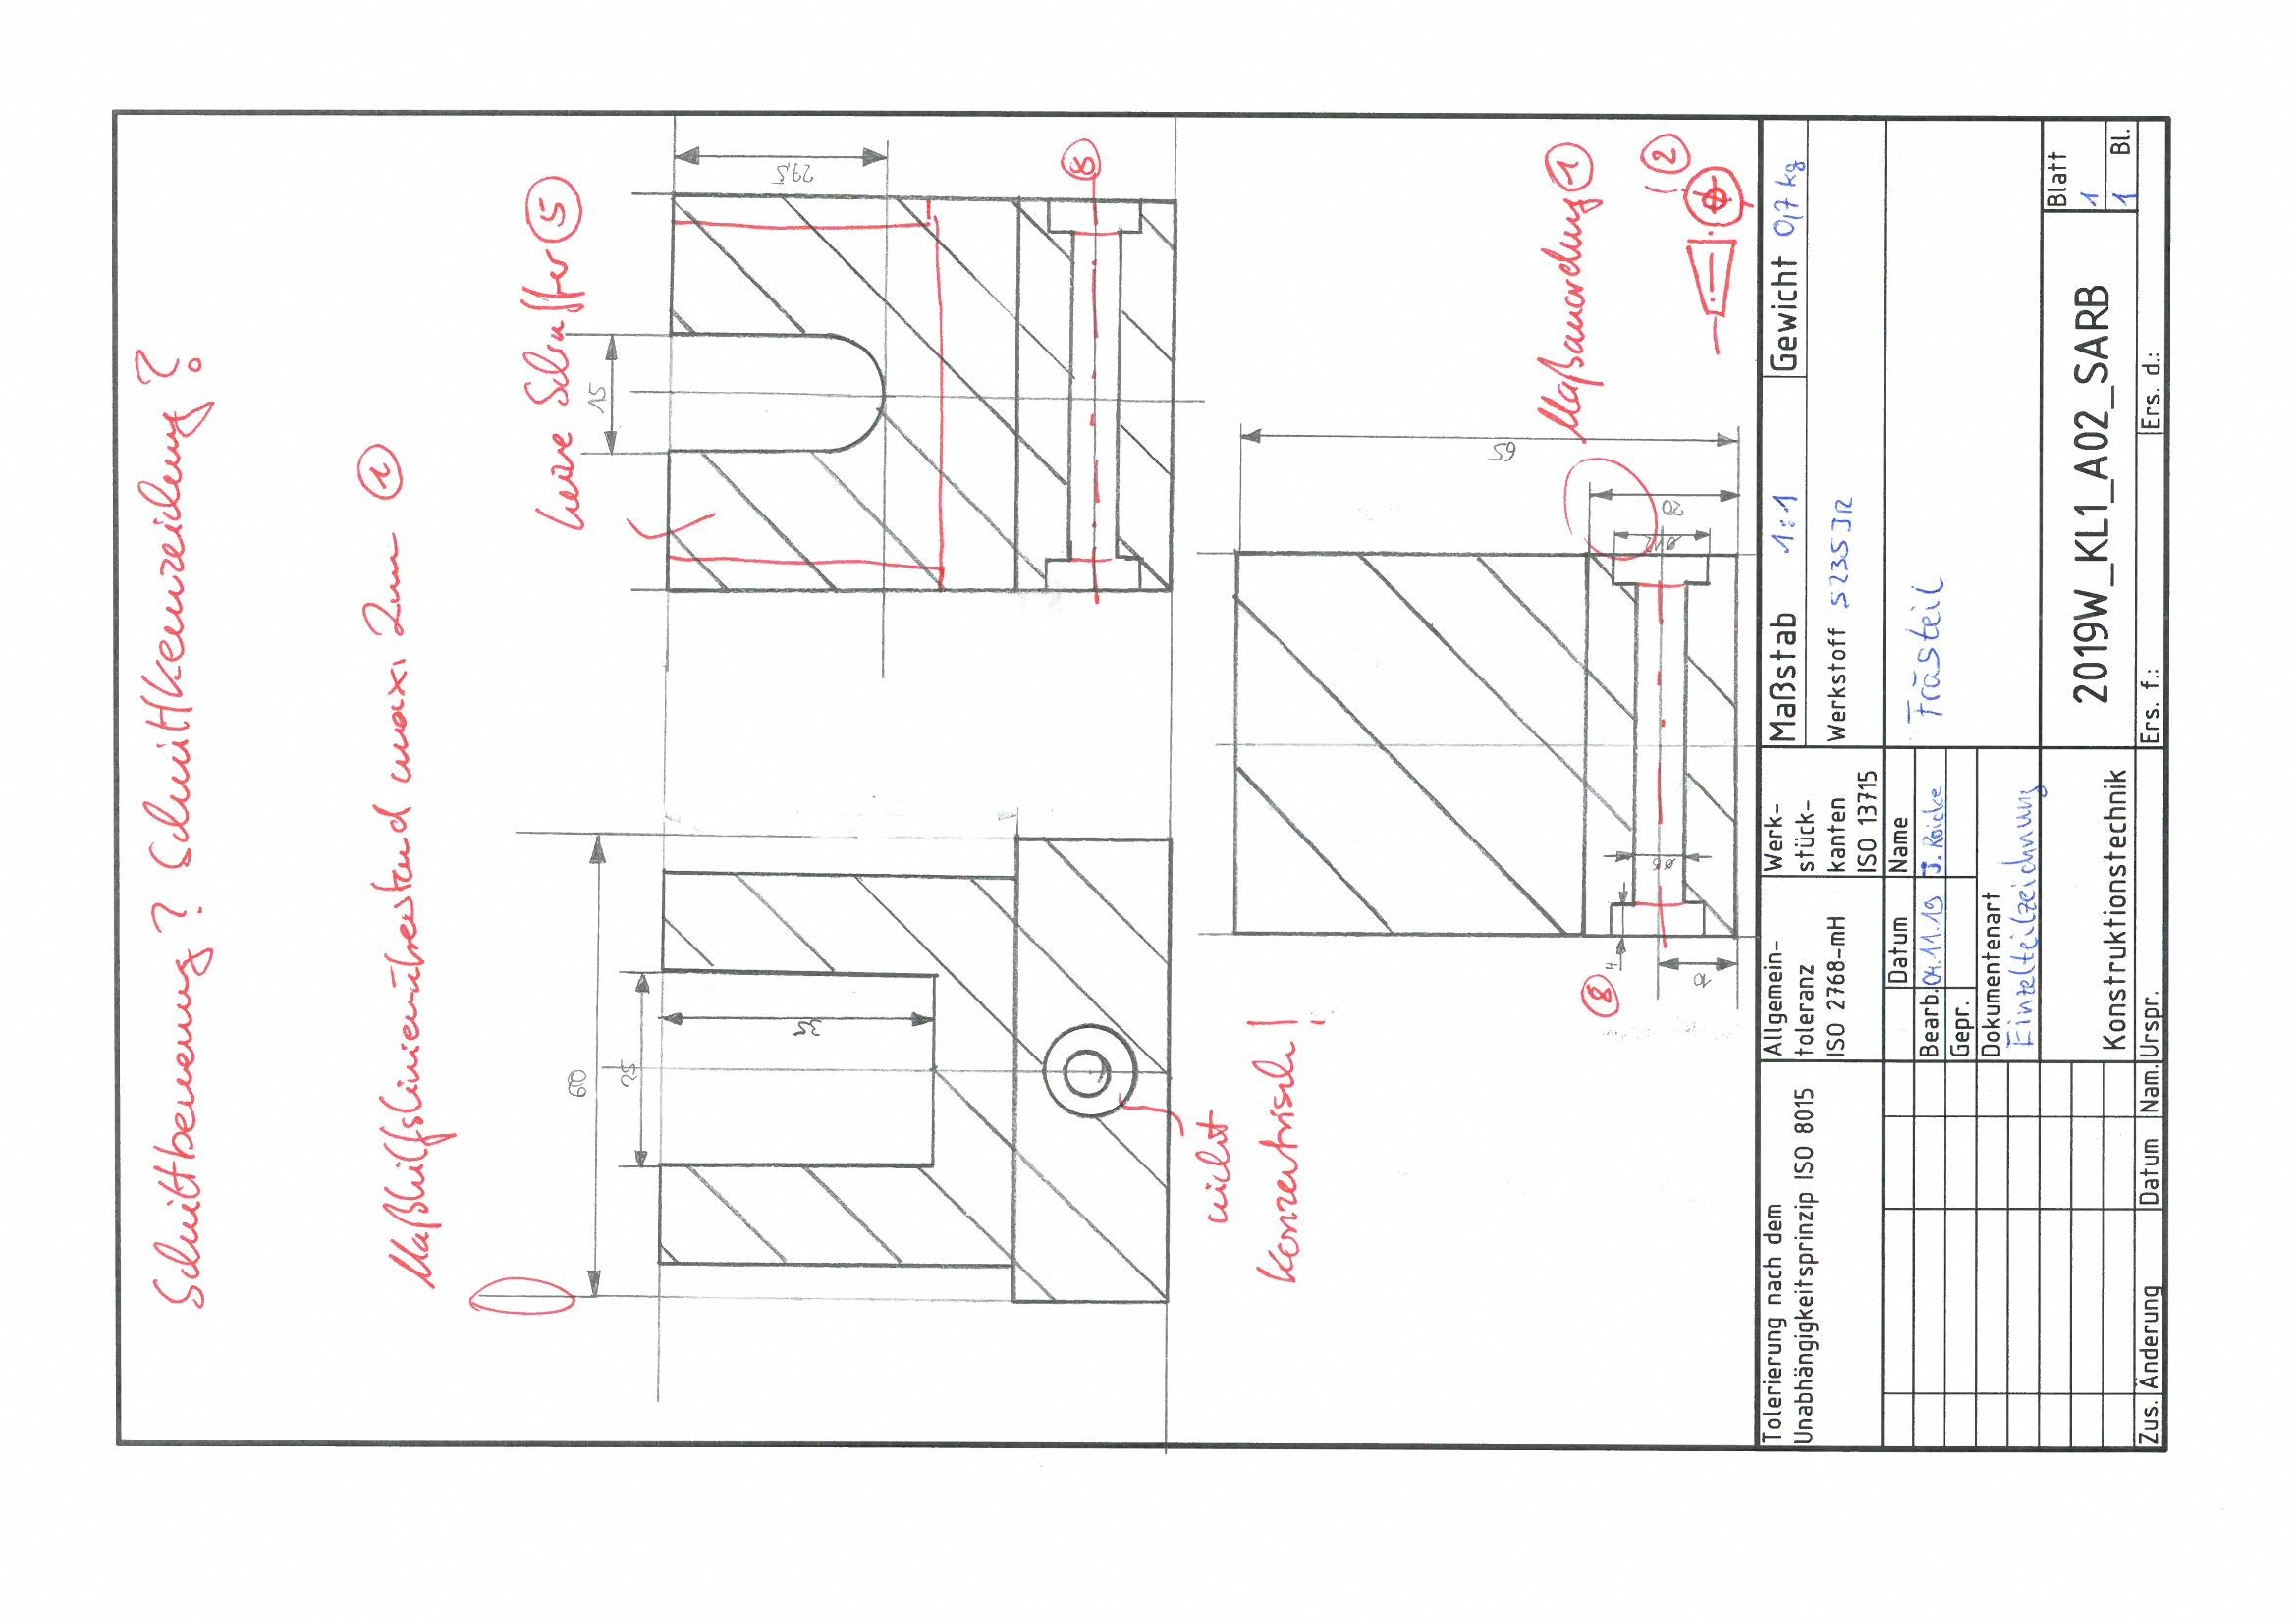 Schnittbenennung? Schnittkennzeichnung?
Maßhilfslinienüberstand max. 2mm 1
keine Schraffur 5
27,5
15
8
60
25
35
nicht
konzentrisch!
Maßanordnung 1
2
65
20
Ø12
Ø6
4
10
8
Tolerierung nach dem
Unabhängigkeitsprinzip ISO 8015
Allgemein-
toleranz
ISO 2768-mH
Werk-
stück-
kanten
ISO 13715
Maßstab 1:1
Gewicht 0,7 kg
Werkstoff S235JR
Datum Name
Bearb. 04.11.19 J. Roicke
Gepr.
Frästeil
Dokumentenart
Einzelteilzeichnung
Konstruktionstechnik
2019W_KL1_A02_SARB
Blatt
1
1 Bl.
Zus. Änderung Datum Nam. Urspr. Ers. f.: Ers. d.: